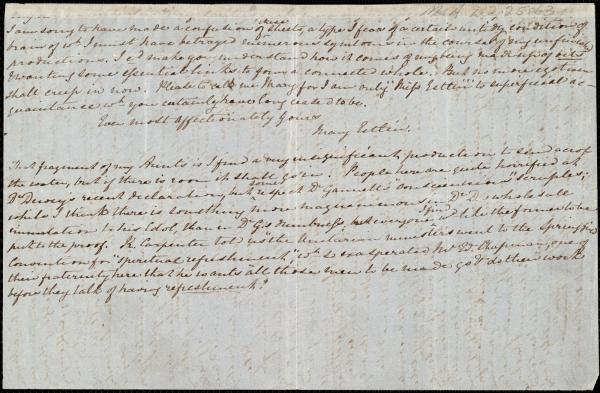 I am sorry to have made a confusion of these sheets, a type I fear of a certain untidy condition of
brain of wh. I must have betrayed numerous symptoms in the course of my epistolary
productions. I cd. make you understand how it comes of my being made up of
& wanting some essential links to form a connected whole. But no more egotism
shall creep in now. Please to call me Mary for I am only "Miss Estlin" to superficial ac-
quaintance wh. you certainly have long ceased to be.
Ever most affectionately yours
Mary Estlin.
That fragment of my Aunt's is I find a very insignificant production to send across
the water, but if there is room it shall go in. People here are quite horrified at
Dr. Dewey's recent declaration, but some respect Dr. Gannett's "conscientious scruples;"
while I think there is something more magnanimous in Dr. D's wholesale
immolation to his Idol, than in Dr. G's dumbness but everyone would like the former to be
put to the proof. R. Carpenter told us the Unitarian ministers went to the Springfield
Convention for "spiritual refreshment," wh. so exasperated Mr. Ed. Chapman, one of
their fraternity here that he wants all those men to be made go & do their work
before they talk of having refreshment."